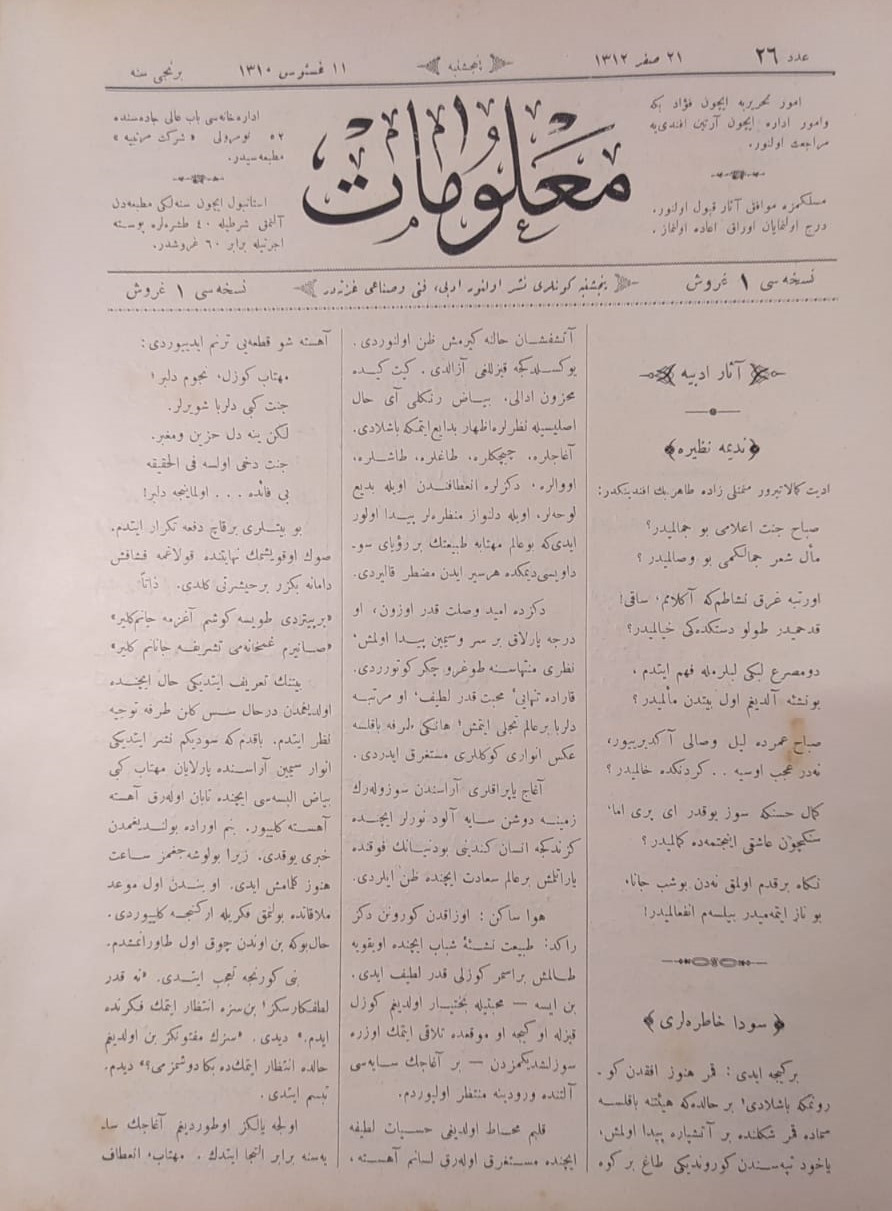 عدد ٢٦
٢١ صفر ١٣١٢
پنجشنبه
١١ اغستوس ١٣١٠
برنجی سنه
امور تحریریه ایچون فؤاد بكه
وامور اداره ایچون آرتین افندی‌یه
مراجعت اولنور.
مسلكمزه موافق آثار قبول اولنور.
درج اولنمایان اوراق اعاده اولنماز.
معلومات
اداره‌خانه‌سی باب عالی جاده‌سنده
٥٢ نومرولی «شركت مرتبیه»
مطبعه‌سیدر.
استانبول ایچون سنه‌لكی مطبعه‌دن
آلنمق شرطیله ٤٠ طشره‌لره پوسته
اجرتیله برابر ٦٠ غروشدر.
نسخه‌سی ١ غروش
پنجشنبه كونلری نشر اولنور ادبی، فنی وصناعی غزته‌در
نسخه‌سی ١ غروش
آثار ادبیه
﴿ندیمه نظیره﴾
ادیت كمالاتپرور منمنلی زاده طاهر بك افندینكدر:
صباح جنت اعلامی بو جمالمیدر؟
مآل شعر جمالكمی بو وصالمیدر ؟
اورتبه غرق نشاطم‌كه آكلامم، ساقی!
قدحمیدر طولو دستكده‌كی خیالمیدر؟
دومصرع لبكی لبلرمله فهم ایتدم ،
بونشئه آلدیغم اول بیتدن مألمیدر؟
صباح عمرده لیل وصالی آكدیرییور،
نه‌در عجب اوسیه . . كردنكده خالمیدر ؟
كمال حسنكه سوز یوقدر ای پری اما،
سنكچون عاشقی اینجتمه‌ده كمالمیدر ؟
نكاه برقدم اولمق نه‌دن بوشب جانا،
بو ناز ایتمه‌میدر بیلسه‌م انفعالمیدر!
﴿ سودا خاطره‌لری ﴾
بركیجه ایدی : قمر هنوز افقدن كو ـ
رونمكه باشلادی! بر حالده‌كه هیئتنه باقلسه
سماده قمر شكلنده بر آتشپاره پیدا اولمش،
یاخود تپه‌سندن كوروندیكی طاغ بر كوه
آتشفشان حالنه كیرمش ظن اولنوردی.
یوكسلدكجه قیزللغی آزالدی. كیت كیده
محزون ادالی، بیاض رنكلی آی حال
اصلیسیله نظرلره اظهار بدایع ایتمكه باشلادی.
آغاجلره، چیچكلره، طاغلره، طاشلره،
اووالره، دكزلره انعطافندن اویله بدیع
لوحه‌لر، اویله دلنواز منظره‌لر پیدا اولور
ایدی‌كه بوعالم مهتابه طبیعتك بر رؤیای سو ـ
داویسی دیمكده هرسیر ایدن مضطر قالیردی.
دكزده امید وصلت قدر اوزون، او
درجه پارلاق بر سر وسیمین پیدا اولمش،
نظری منتهاسنه طوغرو چكر كوتورردی.
قاراده تنهایئ محبت قدر لطیف، او مرتبه
دلربا برعالم تجلی ایتمش! هانكی طرفه باقلسه
عكس انواری كوكللری مستغرق ایدردی.
آغاج یاپراقلری آراسندن سوزوله‌رك
زمینه دوشن سایه آلود نورلر ایچنده
كزندكجه انسان كندینی بودنیانك فوقنده
یاراتلمش برعالم سعادت ایچنده ظن ایلردی.
هوا ساكن : اوزاقدن كورونن دكز
راكد: طبیعت نشئۀ شباب ایچنده اویقویه
طالمش براسمر كوزلی قدر لطیف ایدی.
بن ایسه — محبتیله بختیار اولدیغم كوزل
قیزله او كیجه او موقعده تلاقی ایتمك اوزره
سوزلشدیكمزدن — بر آغاجك سایه‌سی
آلتنده ورودینه منتظر اولیوردم.
قلبم محاط اولدیغی حسیات لطیفه
ایچنده مستغرق اوله‌رق لسانم آهسته،
آهسته شو قطعه‌یی ترنم ایدیوردی:
مهتاب كوزل، نجوم دلبر،
جنت كبی دلربا شویرلر.
لكن ینه دل حزین ومغبر.
جنت دخی اولسه فی الحقیقه
بی فائده . . . اولماینجه دلبر!
بو بیتلری برقاچ دفعه تكرار ایتدم.
صوك اوقویشمك نهایتنده قولاغمه فشافش
دامانه بكزر برخیشرتی كلدی. ذاتاً:
«بر پیتردی طویسه كوشم آغزمه جانم‌كلیر»
«صانیرم غمخانه‌می تشریفه جانانم كلیر»
بیتنك تعریف ایتدیكی حال ایچنده
اولدیغمدن درحال سس كلن طرفه توجیه
نظر ایتدم. باقدم‌كه سودیكم نشر ایتدیكی
انوار سیمین آراسنده پارلایان مهتاب كبی
بیاض البسه‌سی ایچنده تابان اوله‌رق آهسته
آهسته كلییور. بنم اوراده بولندیغمدن
خبری یوقدی. زیرا بولوشه‌جغمز ساعت
هنوز كلمامش ایدی. او بندن اول موعد
ملاقاتده بولنمق فكریله اركنجه كلییوردی.
حال‌بوكه بن اوندن چوق اول طاورانمشدم.
بنی كورنجه تعجب ایتدی. «نه قدر
لطفكارسكز! بن سزه انتظار ایتمك فكرنده
ایدم.» دیدی. «سزك مفتونكز بن اولدیغم
حالده انتظار ایتمك‌ده بكا دوشمزمی؟» دیدم.
تبسم ایتدی.
اولجه یالكز اوطوردیغم آغاجك سا ـ
یه‌سنه برابر التجا ایتدك. مهتاب، انعطاف